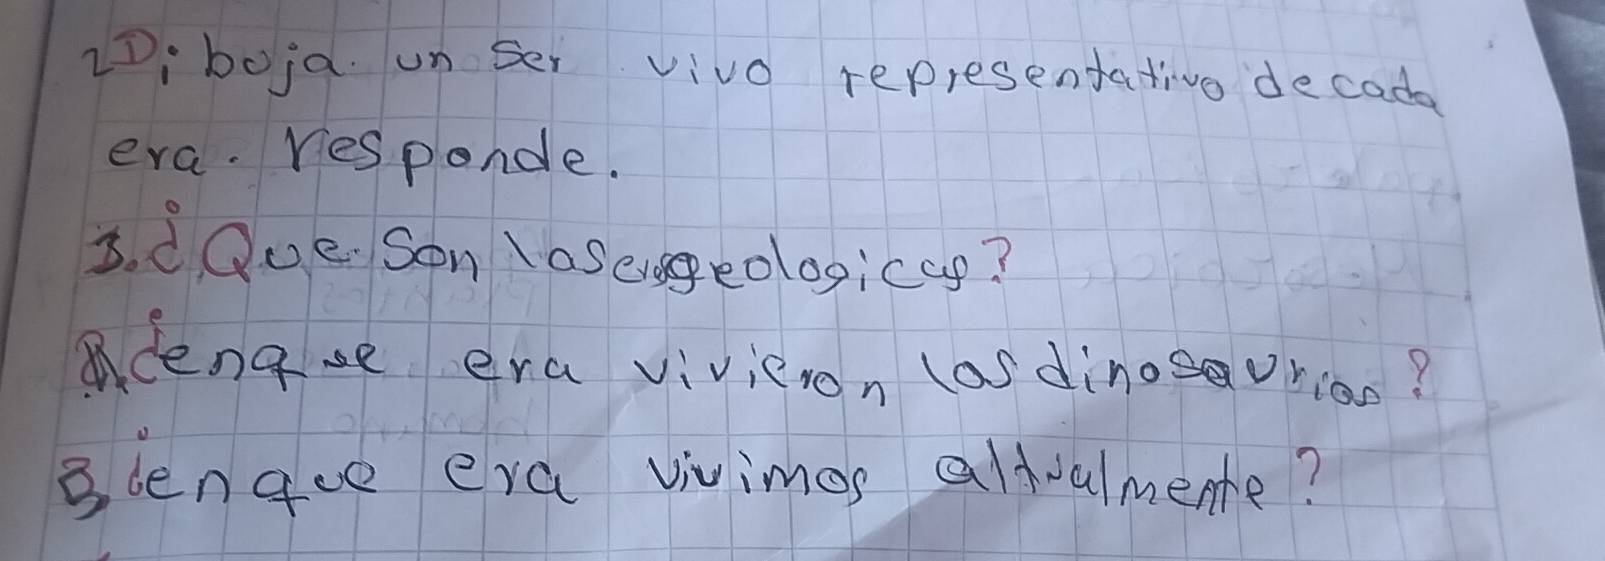 2 Diboja. un ser vivo representativo de cada
era. responde.
3. ¿Que. Son las eras geologicas?
¿en que era vivieron los dinosaurios?
B ¿en que era vivimos altualmente?